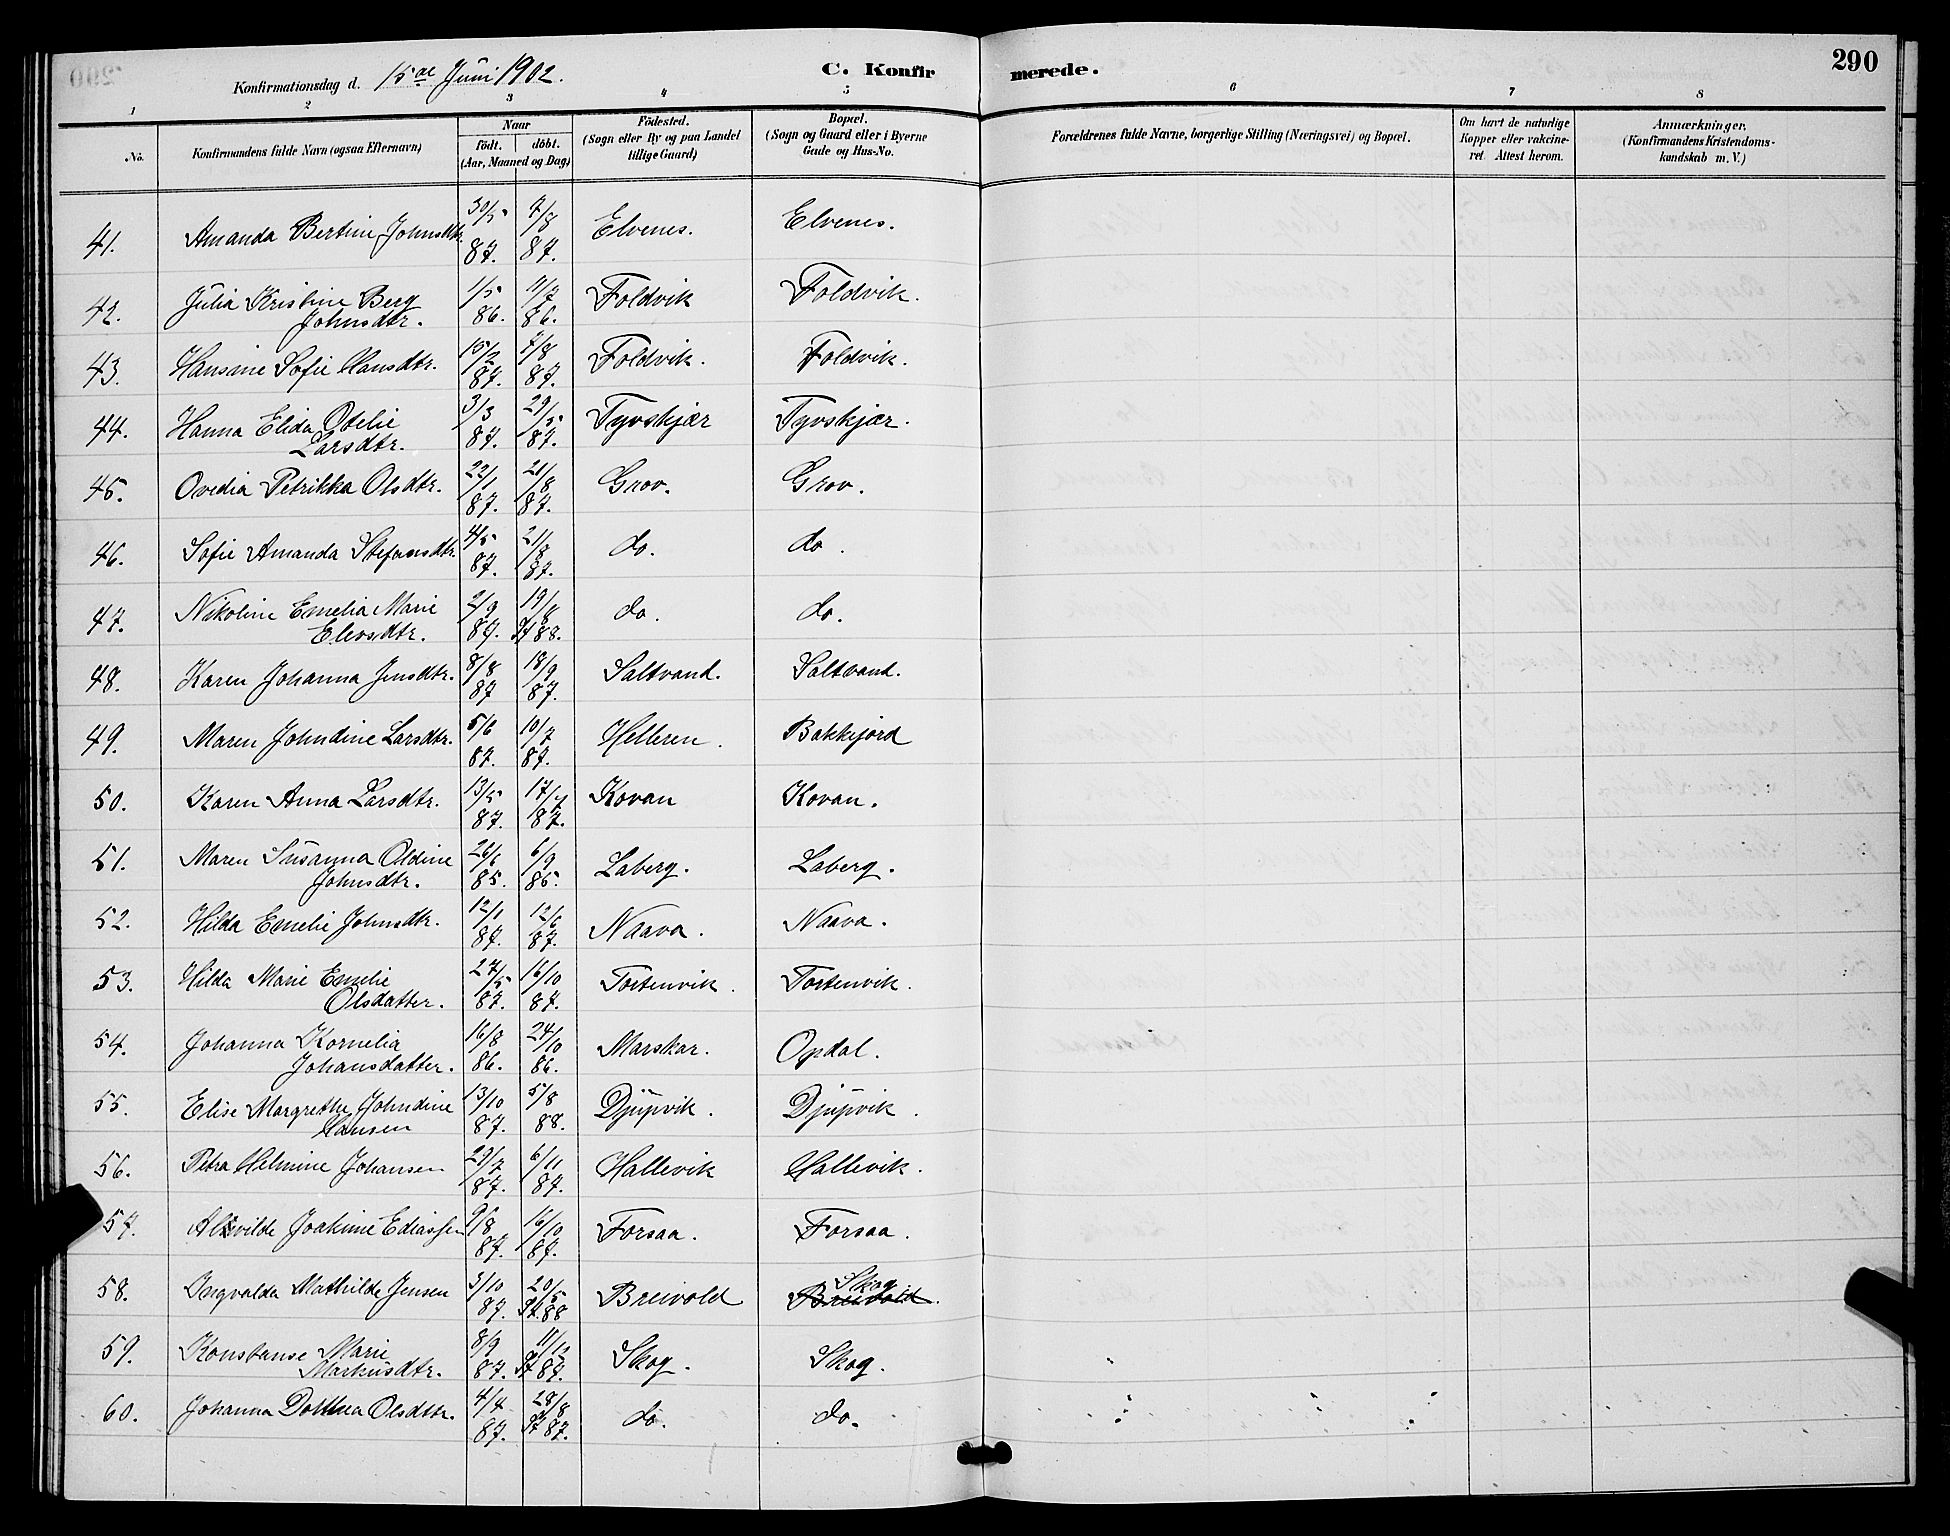 Konfirmationsdag d. 15de Juni 1902.
C. Konfirmerede.
290
1 2 3 4 5 6 7 8
No.
Konfirmandens fulde Navn (ogsaa Efternavn)
Naar
födt. döbt.
(Aar, Maaned og Dag)
Födested.
(Sogn eller By og paa Landet
tillige Gaard)
Bopæl.
(Sogn og Gaard eller i Byerne
Gade og Hus-No.
Forældrenes fulde Navne, borgerlige Stilling (Næringsvei) og Bopæl.
Om havt de naturlige
Kopper eller vakcine-
ret. Attest herom.
Anmærkninger.
(Konfirmandens Kristendoms-
kundskab m. V.)
41. Amanda Bertine Johnsdtr. 30/5 87. 7/8 87. Elvenes. Elvenes.
42. Julia Kristine Berg 1/5 86. 11/7 86. Foldvik Foldvik.
Johnsdtr.
43. Hansine Sofie Hansdtr. 15/2 87. 7/8 87. Foldvik. Foldvik.
44. Hanna Elida Otelie 3/3 87. 29/5 87. Tyvskjær Tyvskjær.
Larsdtr.
45. Ovedia Petrikka Olsdtr. 22/1 87. 21/8 87. Grov. Grov.
46. Sofie Amanda Stefansdtr. 4/5 87. 21/8 87. do. do.
47. Nikoline Emelia Marie 2/9 87. 19/8 88. do. do.
Elevsdtr.
48. Karen Johanna Jensdtr. 8/8 87 18/9 87. Saltvand. Saltvand.
49. Maren Johndine Larsdtr. 5/6 87. 10/7 87. Helleren. Bakkejord
50. Karen Anna Larsdtr. 13/5 87. 17/7 87. Kovan Kovan.
51. Maren Susanna Oldine 26/6 85. 6/9 85. Laberg. Laberg.
Johnsdtr.
52. Hilda Emelie Johnsdtr. 12/1 87. 12/6 87. Naava. Naava.
53. Hilda Marie Emelie 27/5 87. 16/10 87. Tostenvik. Tostenvik.
Olsdatter.
54. Johanna Kornelia 16/8 86. 24/10 86. Marskar. Opdal.
Johansdatter.
55. Elise Margrethe Johndine 13/10 87. 5/8 88. Djupvik. Djupvik.
Hansen
56. Petra Helmine Johansen 29/7 87. 6/11 87. Hallevik Hallevik.
57. Alvilde Joakime Ediassen 9/8 87. 16/10 87. Forsaa. Forsaa.
58. Ingvalda Mathilde Jensen 3/10 87. 20/5 88 Breivold Skog Breivold.
59. Konstanse Marie 8/9 87. 11/12 87. Skog. Skog.
Markusdtr.
60. Johanna Dorthea Olsdtr. 4/4 87. 28/8 87. do. do.